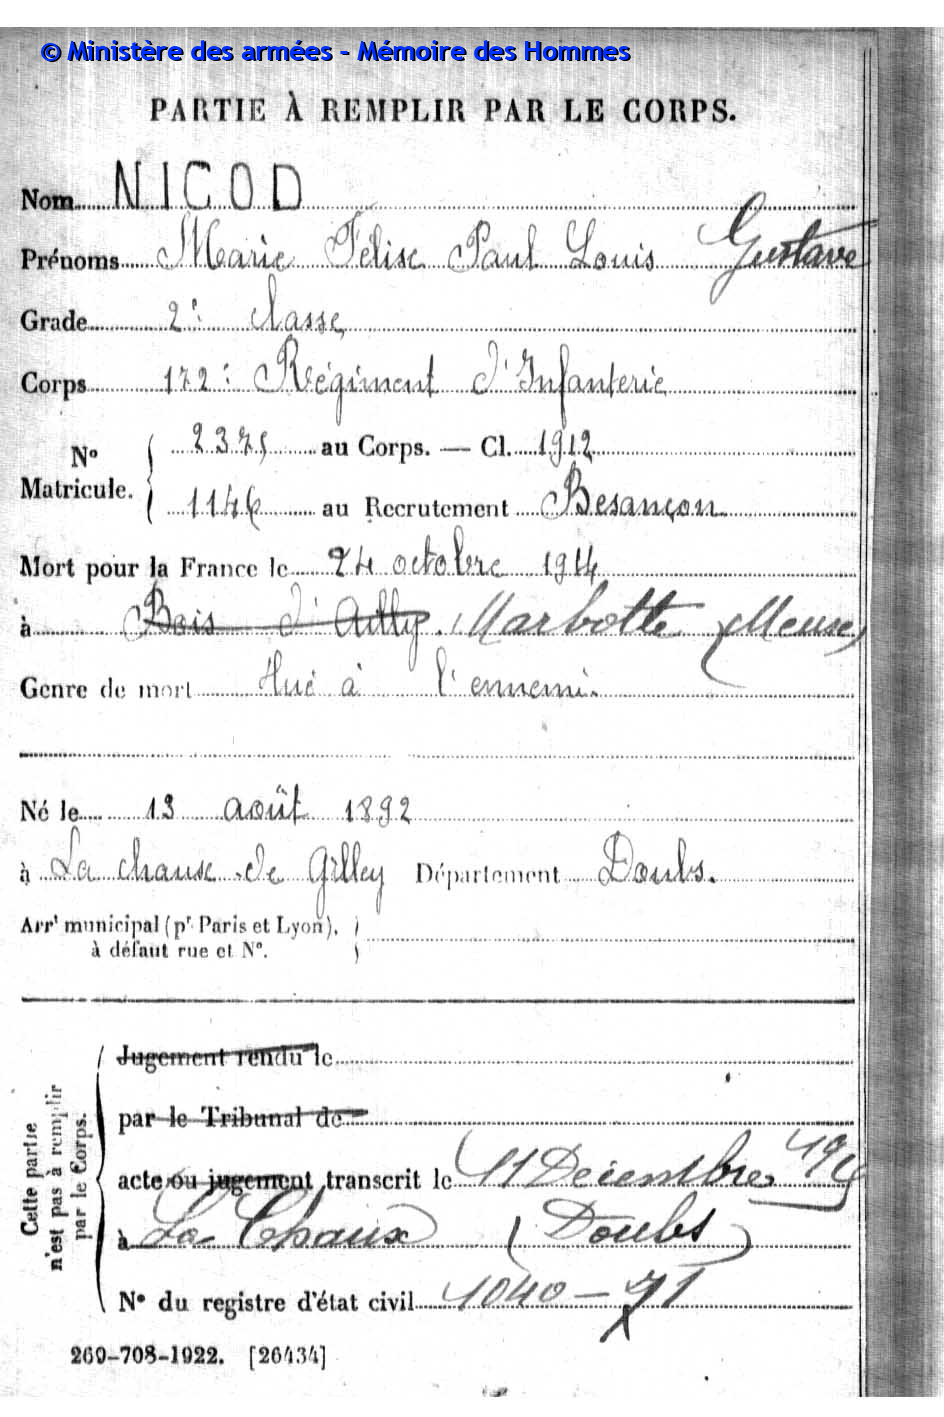 © Ministère des armées - Mémoire des Hommes
PARTIE À REMPLIR PAR LE CORPS.
Nom NICOD
Prénoms Marie Félise Paul Louis Gustave
Grade 2e classe
Corps 172e Régiment d'Infanterie
No Matricule. { 2375 au Corps. — Cl. 1912
1146 au Recrutement Besançon
Mort pour la France le 24 octobre 1914
à Bois d'Ailly. Marbotte (Meuse)
Genre de mort Tué à l'ennemi.
Né le 13 août 1892
à La chause de Gilley Département Doubs.
Arrt municipal (pr Paris et Lyon),
à défaut rue et No.
Cette partie
n'est pas à remplir
par le Corps.
Jugement rendu le
par le Tribunal de
acte ou jugement transcrit le 11 Décembre
à La Chaux (Doubs)
No du registre d'état civil 1040-71
269-708-1922. [26434]